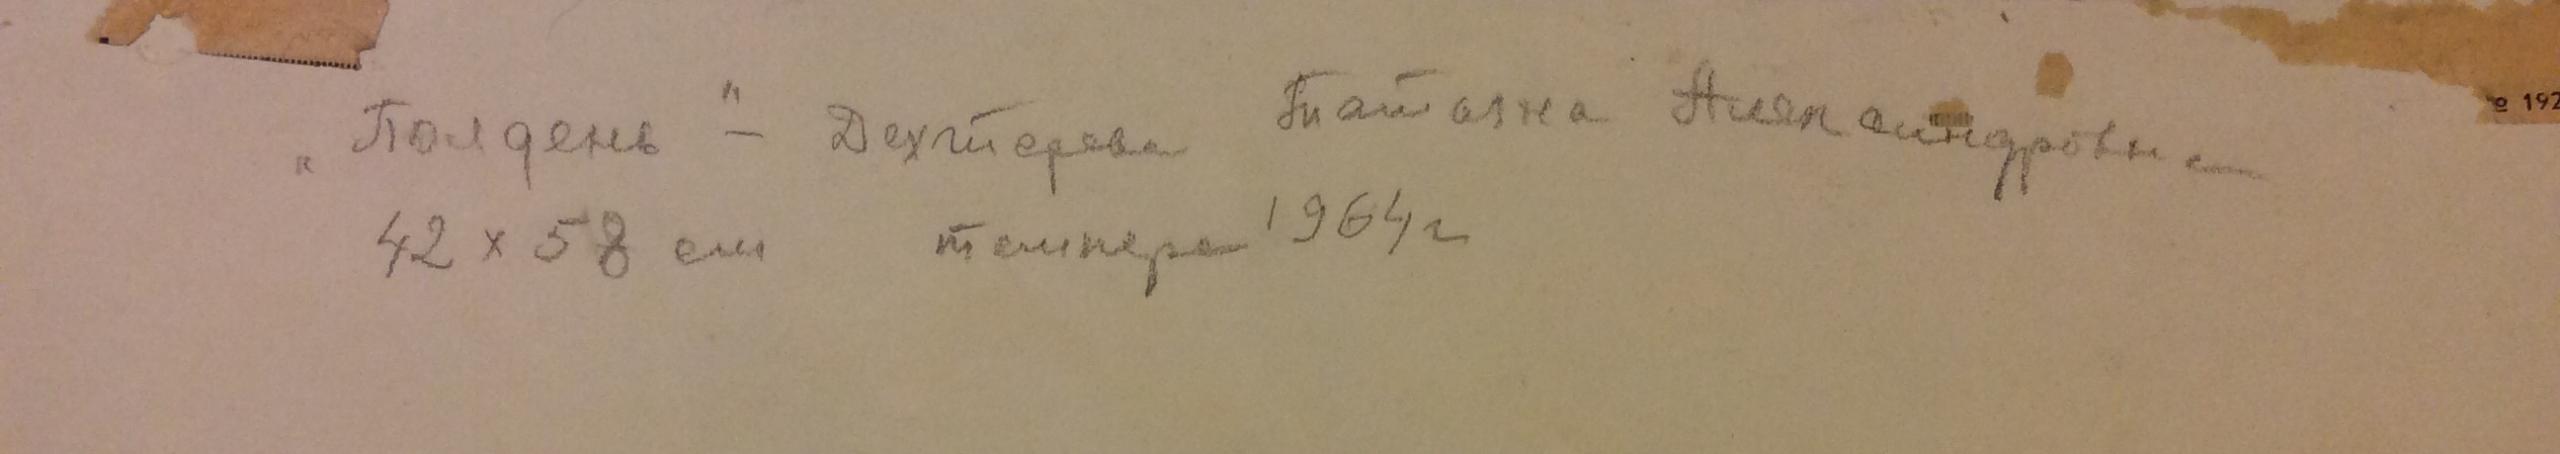 „Полдень" – Дехтерева Татьяна Александровна
42 х 58 см темпера 1964 г
º 192